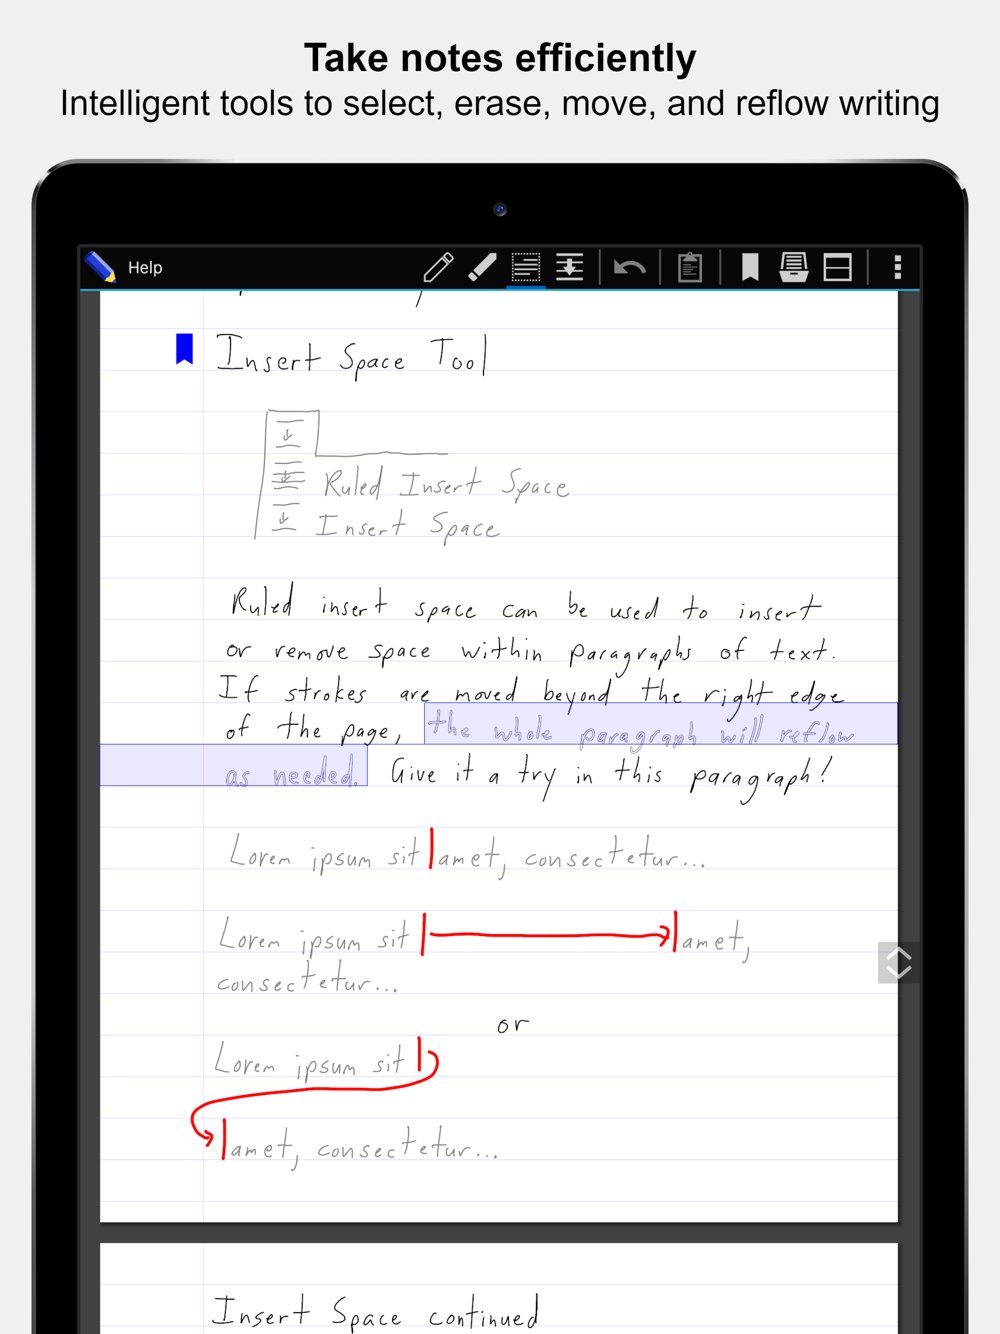 Take notes efficiently
Intelligent tools to select, erase, move, and reflow writing
Help
Insert Space Tool
Ruled Insert Space
Insert Space
Ruled insert space can be used to insert
or remove space within paragraphs of text.
If strokes are moved beyond the right edge
of the page, the whole paragraph will reflow
as needed. Give it a try in this paragraph!
Lorem ipsum sit amet, consectetur...
Lorem ipsum sit amet,
consectetur...
or
Lorem ipsum sit
amet, consectetur...
Insert Space continued